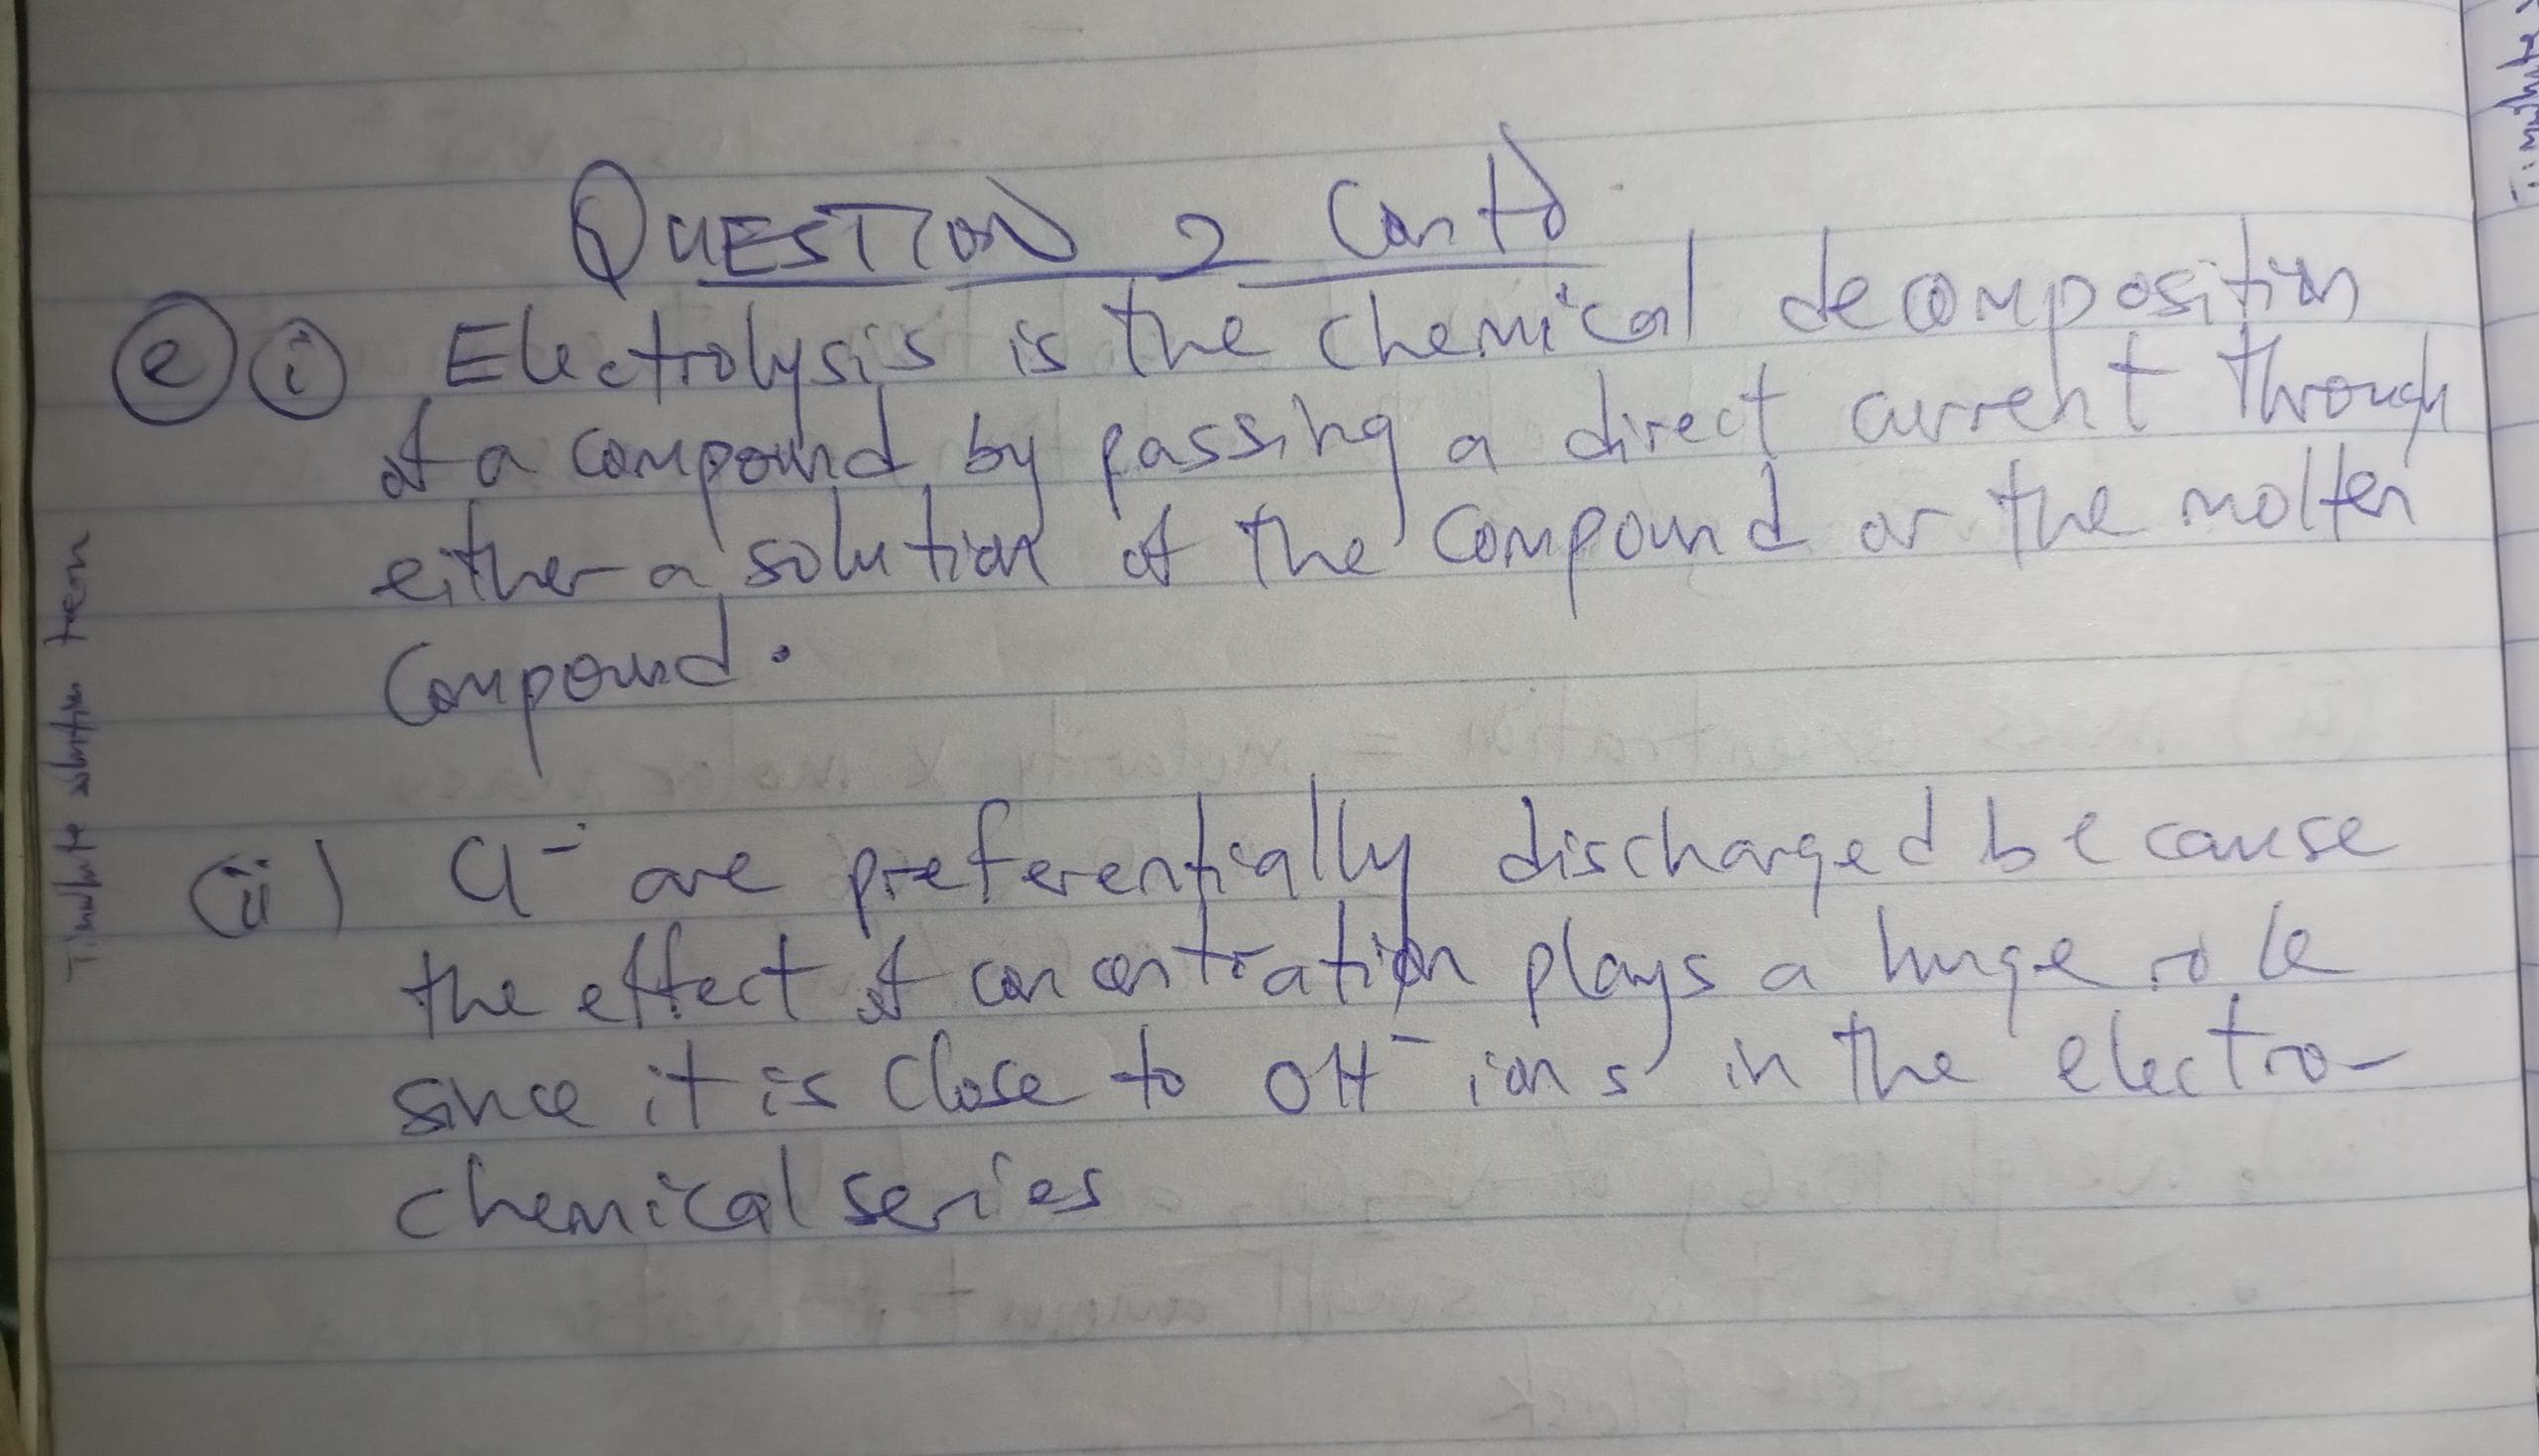 QUESTION 2 Contd
e i Electrolysis is the chemical decomposition
of a compound by passing a direct current through
either a solution of the compound or the molten
compound.
(ii) Cl⁻ are preferentially discharged because
the effect of concentration plays a huge role
since it is close to OH⁻ ions in the electro-
chemical series
Timilute solution team